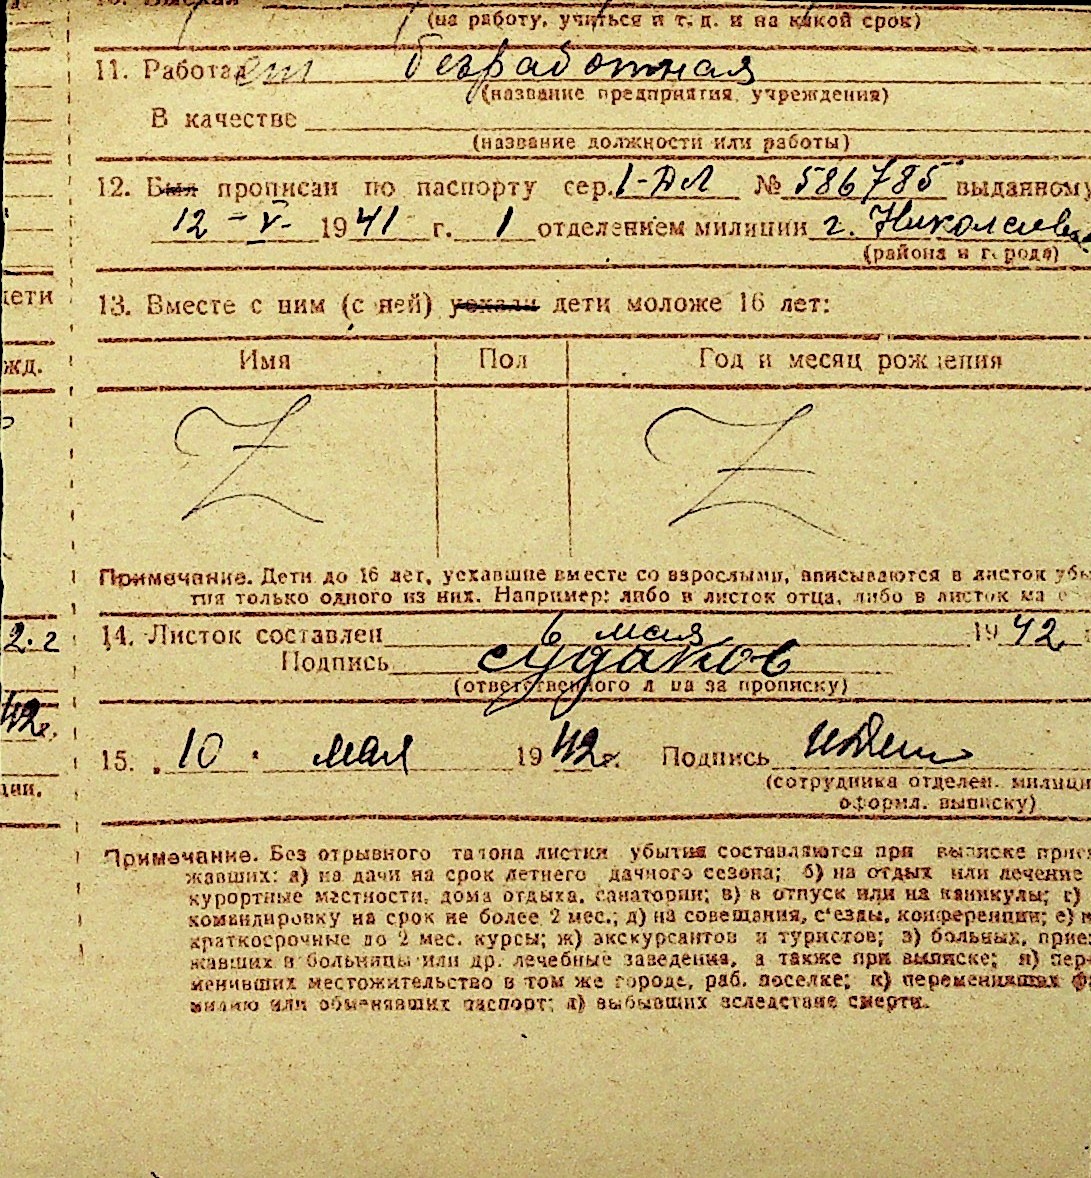 (на работу, учиться и т. д. и на какой срок)
11. Работает безработная
(название предприятия, учреждения)
В качестве
(название должности или работы)
12. Был прописан по паспорту сер. 1-ДЛ № 586785 выданному
12 - V - 1941 г. 1 отделением милиции г. Николаева
(района и города)
дети
13. Вместе с ним (с ней) уехали дети моложе 16 лет:
жд.
Имя Пол Год и месяц рождения
Z Z
Примечание. Дети до 16 лет, уехавшие вместе со взрослыми, вписываются в листок убы-
тия только одного из них. Например: либо в листок отца, либо в листок ма
2. г
14. Листок составлен 6 мая 1942
Подпись Судаков
(ответственного лица за прописку)
42г.
15. 10 мая 1942г. Подпись
ции.
(сотрудника отделен. милици
оформл. выписку)
Примечание. Без отрывного талона листки убытия составляются при выписке приез-
жавших: а) на дачи на срок летнего дачного сезона; б) на отдых или лечение
курортные местности, дома отдыха, санатории; в) в отпуск или на каникулы; г)
командировку на срок не более 2 мес.; д) на совещания, с'езды, конференции; е) н
краткосрочные до 2 мес. курсы; ж) экскурсантов и туристов; з) больных, прие-
жавших в больницы или др. лечебные заведения, а также при выписке; и) пер-
менивших местожительство в том же городе, раб. поселке; к) переменивших фа
милию или обменявших паспорт; л) выбывших вследствие смерти.